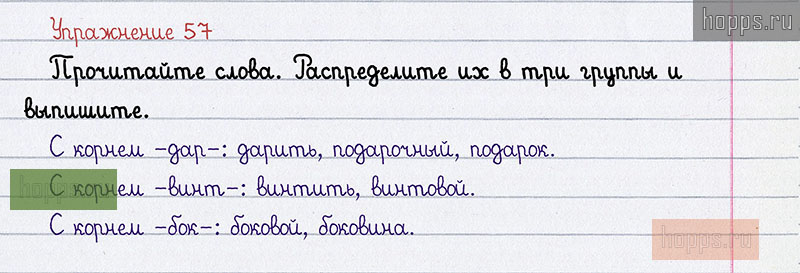 hopps.ru
Упражнение 57
Прочитайте слова. Распределите их в три группы и
выпишите.
С корнем -дар-: дарить, подарочный, подарок.
С корнем -винт-: винтить, винтовой.
С корнем -бок-: боковой, боковина.
hopps.ru